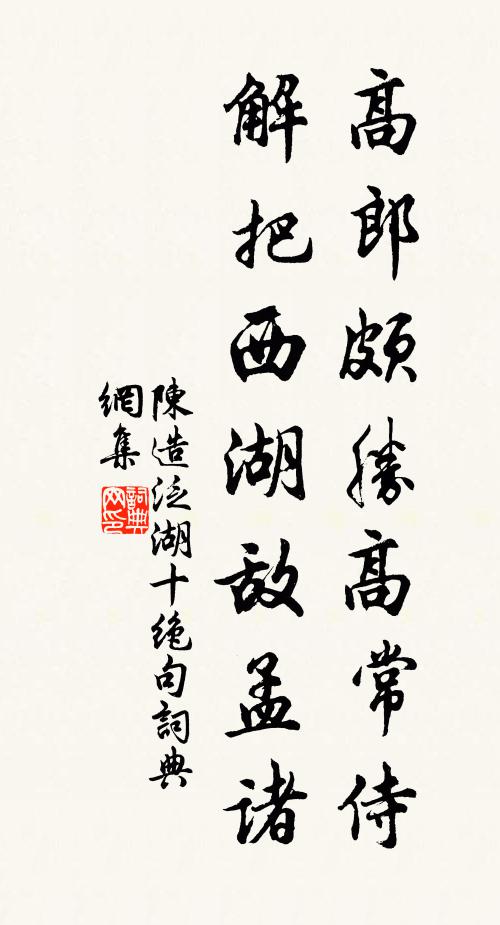 高郎頗勝高常侍
解把西湖敵孟諸
陳造泛湖十絶句詞典
網集
詞典网印